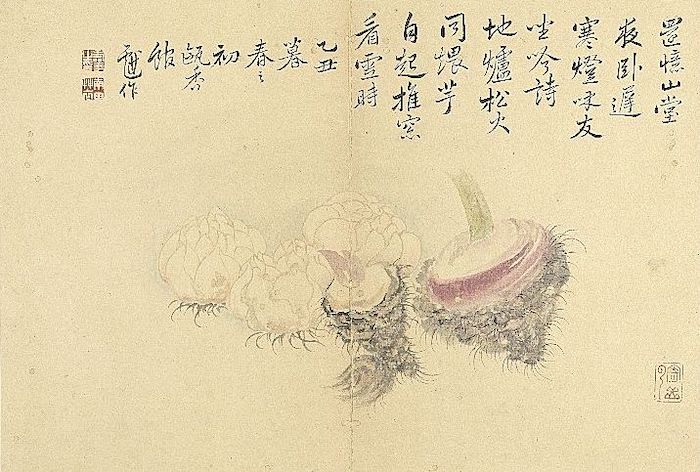 還憶山堂
夜臥遲
寒燈呼友
坐吟詩
地爐松火
同煨芋
自起推窓
看雪時
乙丑
暮
春之
初
甌香
館
戲作